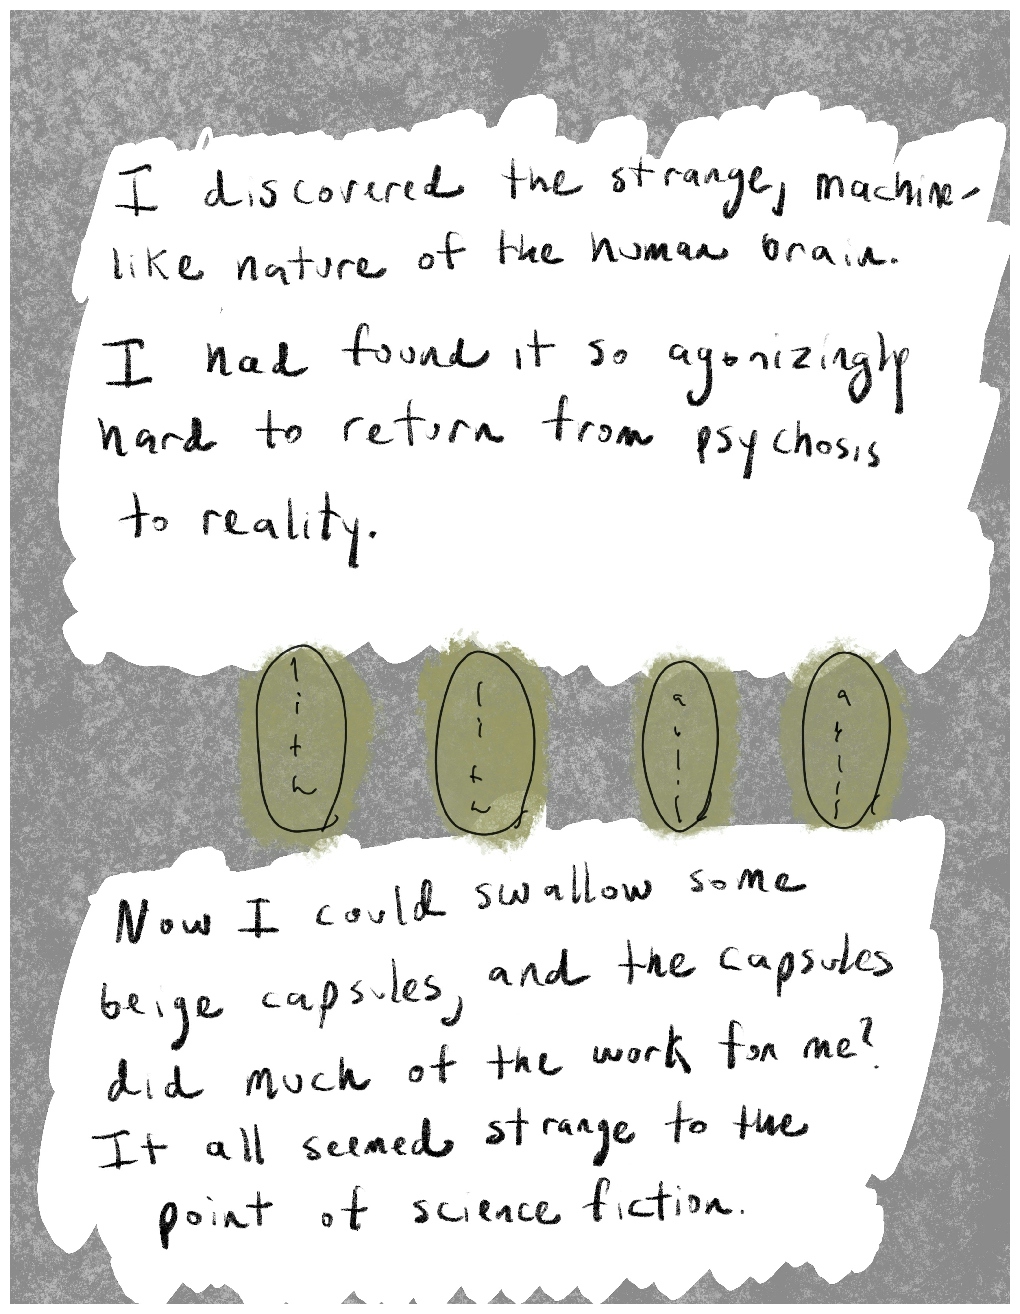 I discovered the strange, machine-
like nature of the human brain.
I had found it so agonizingly
hard to return from psychosis
to reality.
lith
lith
abili
abili
Now I could swallow some
beige capsules, and the capsules
did much of the work for me?
It all seemed strange to the
point of science fiction.